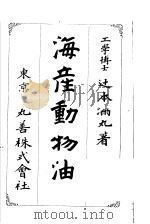 工學博士 辻本滿丸著
海産動物油
東京 丸善株式會社